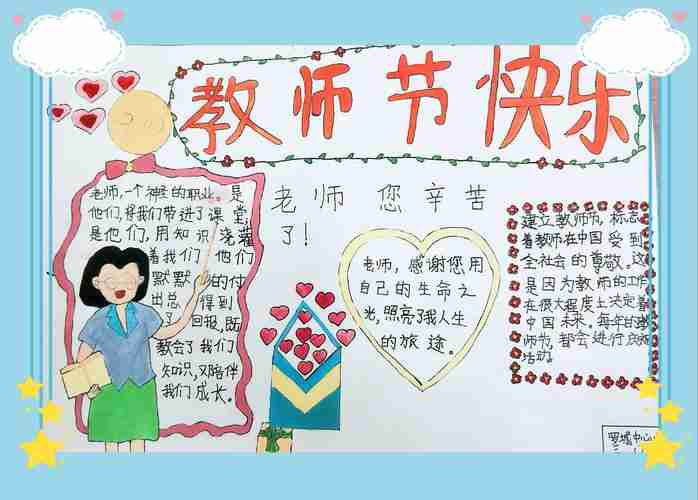 教师节快乐
老师 您辛苦
了！
老师,一个神圣的职业。是
他们,将我们带进了课堂,
是他们,用知识浇灌
着我们 他们
默默 的付
出总 得到
了 回报,既
教会了我们
知识,又陪伴
我们成长。
老师，感谢您用
自己的生命之
光,照亮了我人生
的旅途。
建立教师节,标志
着教师在中国受到
全社会的尊敬。这
是因为教师的工作
在很大程度上决定着
中国未来。每年的教
师节,都会进行庆祝
活动。
罗城中心